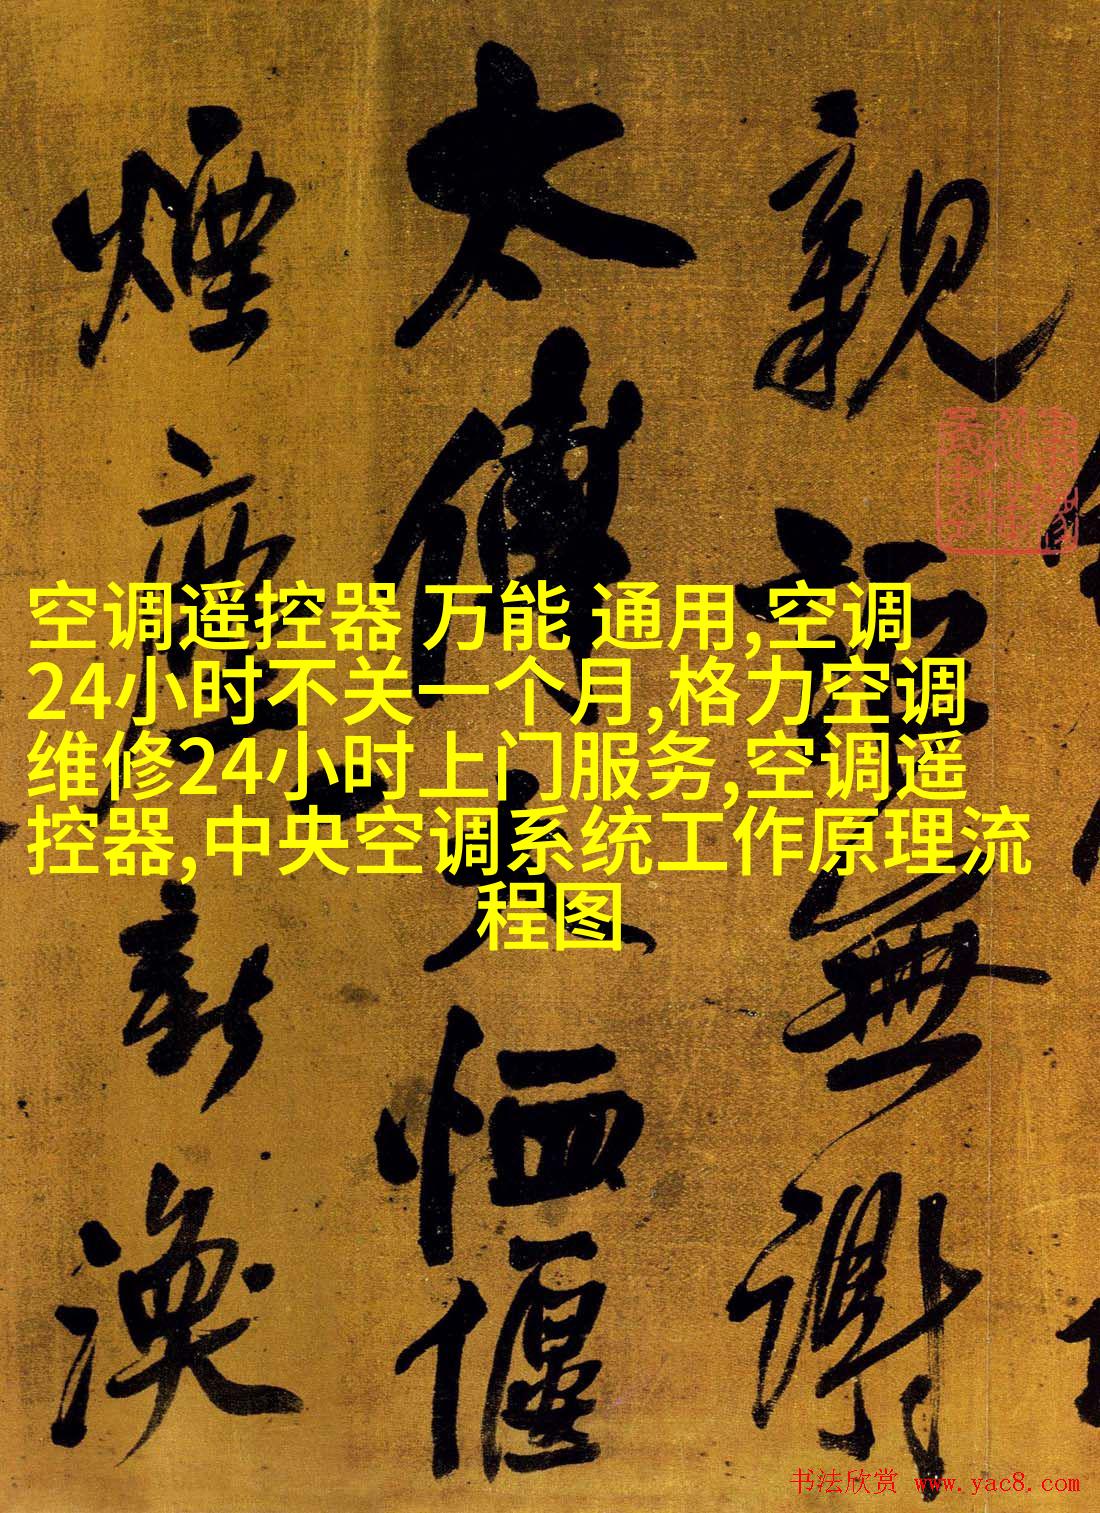 空调遥控器 万能 通用,空调
24小时不关一个月,格力空调
维修24小时上门服务,空调遥
控器,中央空调系统工作原理流
程图
親無謝
太傅恤偃
煙新渙
书法欣赏 www.yac8.com